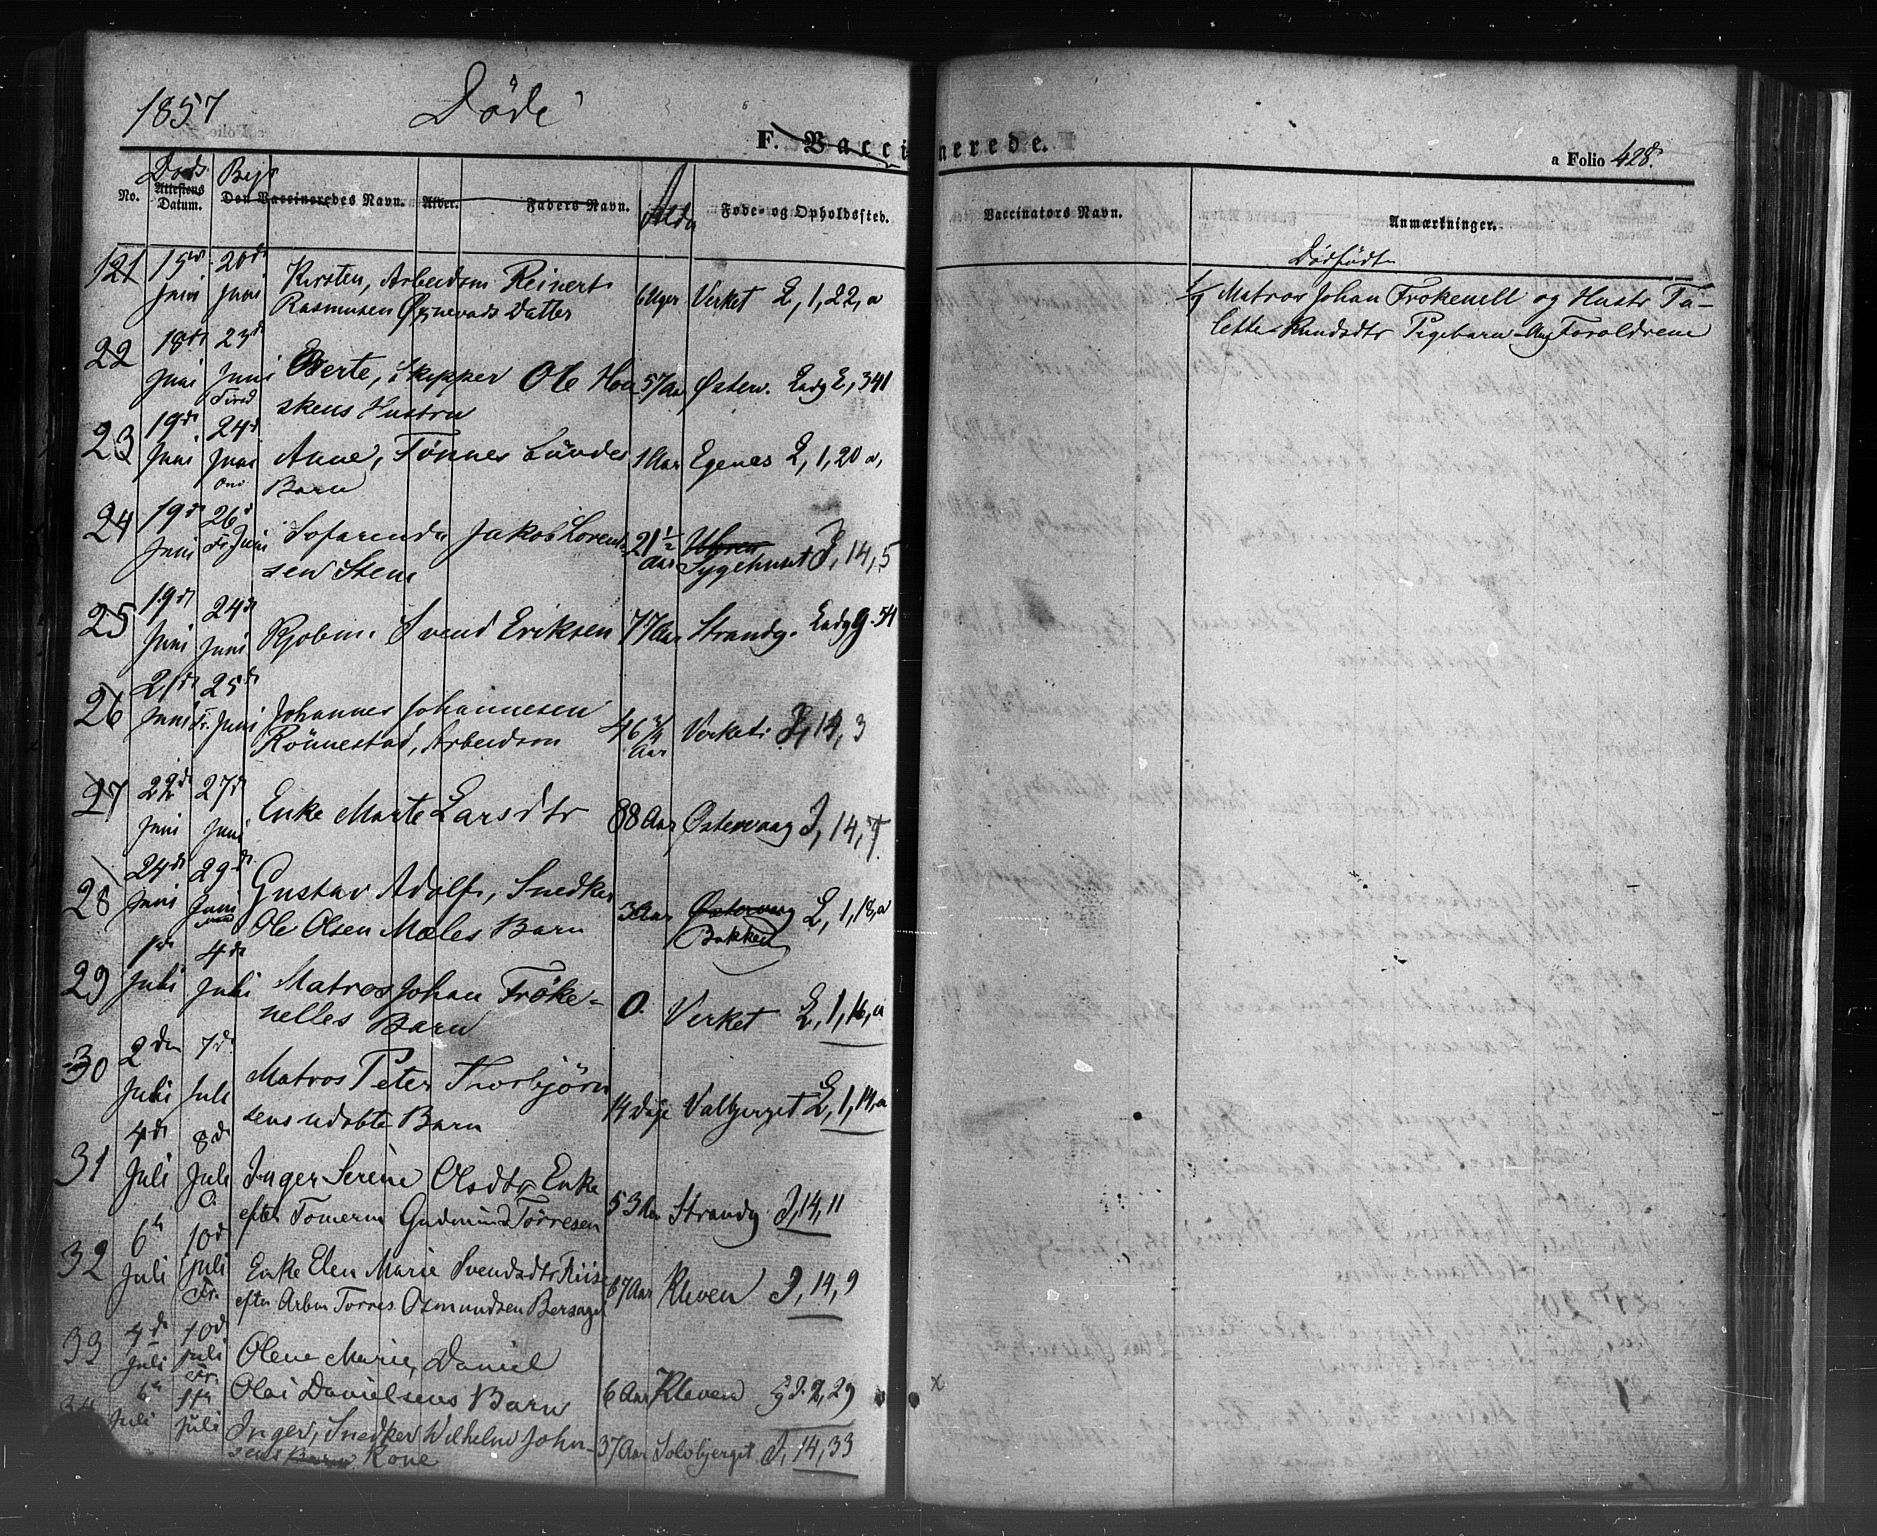 1857 Døde
F. Vaccinerede.
a Folio 428.
No. Døds Attestens Datum. Begr Den Vaccineredes Navn. Alder. Faders Navn. Alder Føde- og Opholdssted. Vaccinators Navn. Anmærkninger.
Dødfødte
121 15de Juni 20de Juni Kirsten, Arbeidsm Reinert
Rasmusen Øgnevads Datter 6 Uger Verket L, 1, 22, a
1/7 Matros Johan Frøkenell og Hustr Ta-
lette Knudsdtr Pigebarn Forældrene
22 18de Juni 23de Juni Berte, Skipper Ole Hou
skens Hustru 57 Aar Østerv. L, 341
23 19de Juni 24de Juni Anne, Tønnes Lundes
Barn 1 Aar Egenes L, 1, 20 a,
24 19de Juni 26de Fr. Juni Sofarende Jakob Lorent-
sen Stene 21 1/2 Aar Sygehuset J, 14, 5
25 19de Juni 24de Juni Kjøbm. Svend Eriksen 77 Aar Strandg. G. 54
26 21de Juni 25de Fr. Juni Johannes Johannesen
Rönnestad, Arbeidsm 46 3/4 Aar Verket J, 14, 3
27 22de Juni 27de Juni Enke Marte Larsdtr 88 Aar Østervaag J, 14, 7
28 24de Juni 29de Juni Gustav Adolf, Snedker
Ole Olsen Mæles Barn 3 Aar Østervaag Bakken L, 1, 18, a
29 1de Juli 4de Juli Matros Johan Fröke-
nelles Barn 0. Verket L, 1, 16, a
30 2den Juli 7de Juli Matros Peter Thorbjörn
sens udøbte Barn 14 Dage Valbjerget L, 1, 14, a
31 4de Juli 8de Juli O. Inger Serine Olsdtr, Enke
efter Tømerm Gudmund Törresen 53 Aar Strandg. J, 14, 11
32 6te Juli 10de Juli Fr. Enke Elen Marie Svendsdtr Riise
efter Arbm Torres Osmundsen Bersagel 67 Aar Kleven J, 14, 9
33 4de Juli 10de Juli Fr. Olene Marie, Daniel
Olai Danielsens Barn 6 Aar Kleven J. 2, 29
34 6te Juli 11te Juli Inger, Snedker Wilhelm John-
sens Barn Kone 37 Aar Solvbjerget J, 14, 33